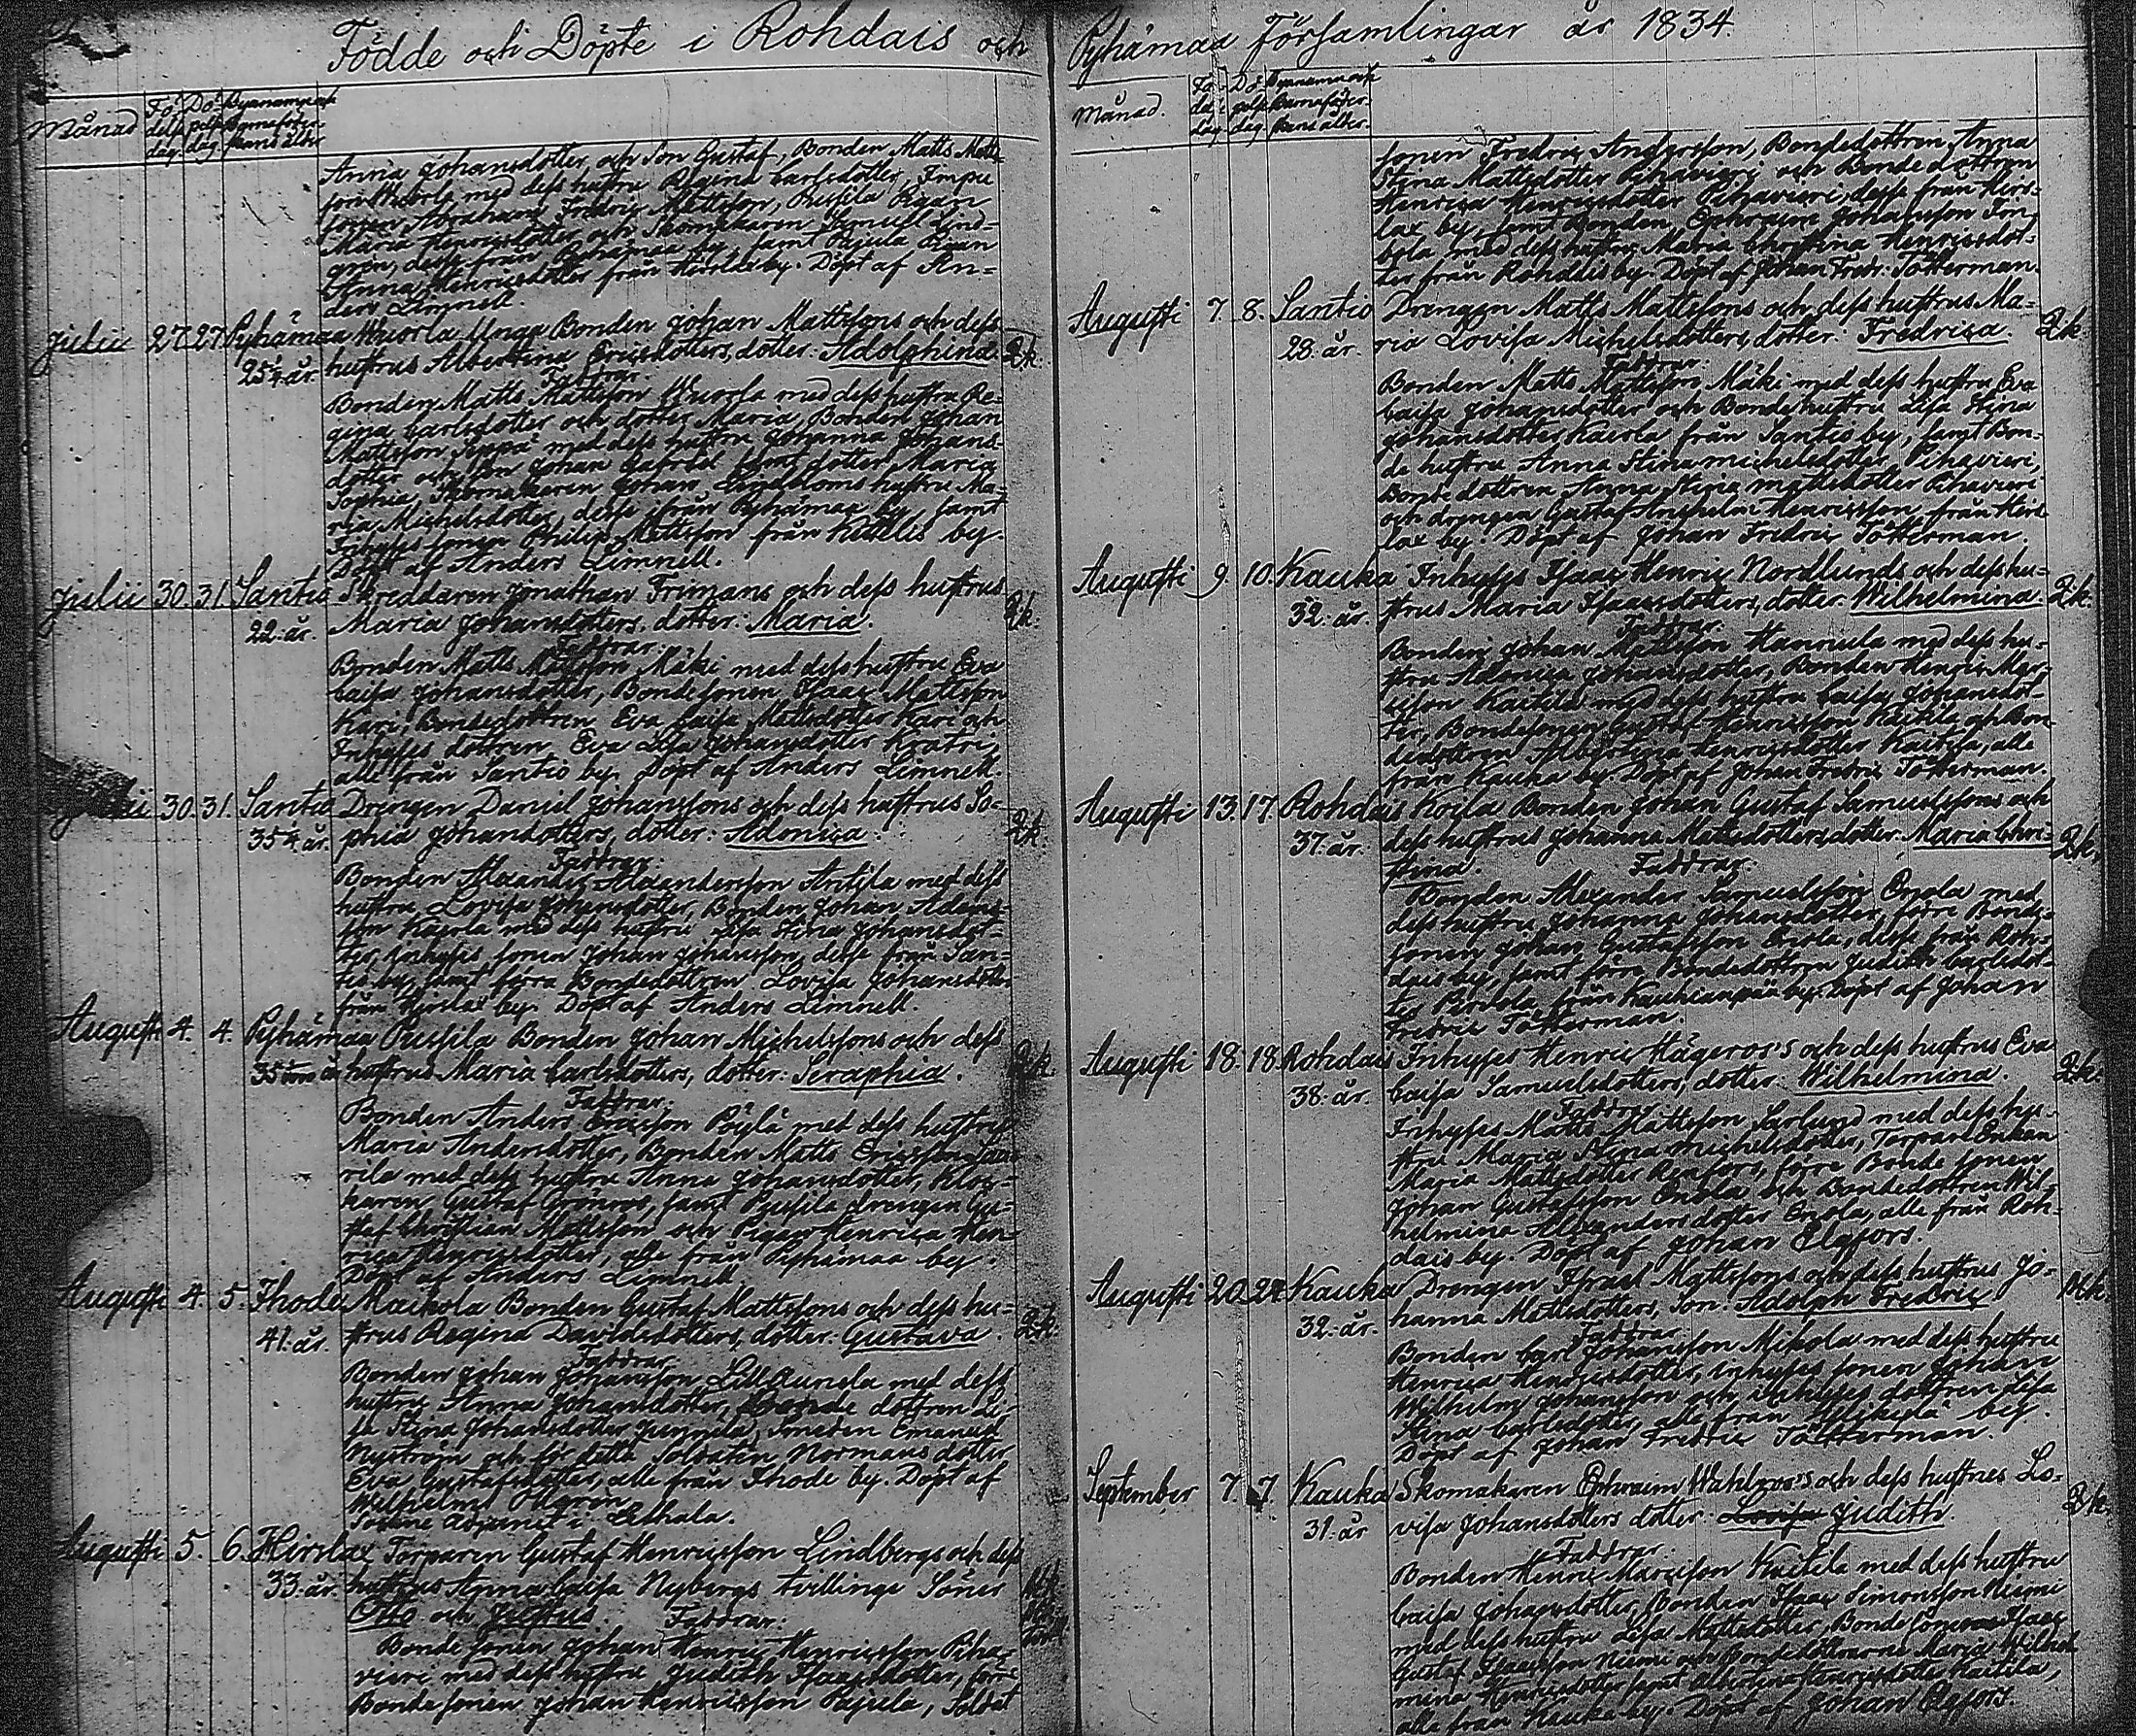 Födde och Döpte i Rohdais och
Månad Fö- delse dag. Dö- pelse dag. Byanamn och Barnaföder- skans ålder
Anna Johansdotter och Son Gustaf, Bonden Matts Matts-
son Wuorla med dess hustru Regina Carlsdotter,
sonen Abraham Fredric Mattsson, Pigan
Maria Henricsdotter och Skomakaren Samuel Lind-
gren, desse från Pyhämaa by, samt Pigan
Anna Henricsdotter från Hirslax by. Döpt af An-
ders Limnell.
Julii 27. 27. Pyhämaa Wuorla Unga Bonden Johan Mattssons och dess
25¼ år. hustrus Albertina Ericsdotters, dotter: Adolphina. Qk.
Faddrar.
Bonden Matts Mattsson Wuorla med dess hustru Re-
gina Carlsdotter och dotter Maria, Bonden Johan
Mattsson Seppä med dess hustru Johanna Johans-
dotter och son Johan Gabriel samt dotter Maria
Sophia, Skomakaren Johan Lindholms hustru Ma-
ria Michelsdotter, desse från Pyhämaa by, samt
Inhyses sonen Philip Mattsson från Kettelis by.
Döpt af Anders Limnell.
Julii 30. 31. Santio Skreddaren Jonathan Frimans och dess hustrus
22. år. Maria Johansdotters, dotter: Maria. Qk.
Faddrar.
Bonden Matts Mattsson Mäki med dess hustru Eva
Caisa Johansdotter, Bondesonen Isaac Mattsson
Kari, Bondedottren Eva Caisa Mattsdotter Kari och
Inhyses dottren Eva Lisa Johansdotter Kratri,
alle från Santio by. Döpt af Anders Limnell.
Julii 30. 31. Santio Drengen Daniel Johanssons och dess hustrus So-
35¼ år. phia Johansdotters, dotter: Adonica. Qk.
Faddrar.
Bonden Alexander Alexandersson Antila med dess
hustru Lovisa Johansdotter, Bonden Johan Adams-
son Kaerla med dess hustru Lisa Stina Johansdot-
ter, inhyses sonen Johan Johansson, desse från San-
tio by, samt förra Bondedottren Lovisa Johansdotter
från Hirslax by. Döpt af Anders Limnell.
Augusti 4. 4. Pyhämaa Prusila Bonden Johan Michelssons och dess
35 år hustrus Maria Carlsdotters, dotter: Seraphia. Qk.
Faddrar.
Bonden Anders Ericsson Pöylä med dess hustru
Maria Andersdotter, Bonden Matts Ericsson Lau-
rila med dess hustru Anna Johansdotter, Kloc-
karen Gustaf Grönroos, samt Prusila drengen Gu-
staf Christian Mattsson och Pigan Henrica Hen-
rica Henricsdotter, alle från Pyhämaa by.
Döpt af Anders Limnell.
Augusti 4. 5. Ihode Maikola Bonden Gustaf Mattssons och dess hu-
41. år. strus Regina Davidsdotters, dotter: Gustava. Qk.
Faddrar.
Bonden Johan Johansson Lill Aunela med dess
hustru Anna Johansdotter, Bonde dottren Li-
sa Stina Johansdotter Junnila, Smeden Emanuel
Nyström och för detta Soldaten Normans dotter
Eva Gustafsdotter, alle från Ihode by. Döpt af
Wilhelm Olgren
Sockne Adjunct i Lethala.
Augusti 5. 6. Hirslax Torparen Gustaf Henricsson Lindbergs och dess
33. år. hustrus Anna Caisa Nybergs tvillinge Söner
Otto och Justus. Faddrar.
Bonde sonen Johan Henric Henricsson Piha-
vieri med dess hustru Judith Isaacsdotter, förre
Bonde sonen Johan Henricsson Pajula, Soldat
Pyhämaa Församlingar år 1834.
Månad. Fö- delse dag. Dö- pelse dag. Byanamn och Barnaföder- skans ålder.
sonen Fredric Andersson, Bondedottren Anna
Stina Mattsdotter Pihavieri och Bonde dottren
Henrica Henricsdotter Pihavieri, desse från Hirs-
lax by, samt Bonden Ephraim Johansson
med dess hustru Maria Christina Henricsdot-
ter från Rohdais by. Döpt af Johan Fredr: Tötterman.
Augusti 7. 8. Santio Drengen Matts Mattssons och dess hustrus Ma-
28. år. ria Lovisa Michelsdotters, dotter: Fredrica. Qk.
Faddrar.
Bonden Matts Mattsson Mäki med dess hustru Eva
Caisa Johansdotter och Bondehustru Lisa Stina
Johansdotter Kaerla från Santio by, samt Bon-
de hustru Anna Stina Michelsdotter Pihavieri,
Bonde dottren Anna Stina Mattsdotter Pihavieri
och drengen Gustaf Anshelm Henricsson från Hirs-
lax by. Döpt af Johan Fredric Tötterman.
Augusti 9. 10. Kauka Inhyses Isaac Henric Nordlunds och dess hu-
32. år. strus Maria Isaacsdotters, dotter: Wilhelmina. Qk.
Faddrar.
Bonden Johan Mattsson Hannula med dess hu-
stru Adonica Johansdotter, Bonden Henric Mar-
cusson Kaitila med dess hustru Caisa Johansdot-
ter, Bondesonen Gustaf Henricsson Kaitila och Bon-
dedottren Albertina Henricsdotter Kaitila, alle
från Kauka by. Döpt af Johan Fredric Tötterman.
Augusti 13. 17. Rohdais Koila Bonden Johan Gustaf Samuelssons och
37. år. dess hustrus Johanna Mattsdotters, dotter: Maria Chri-
stina. Faddrar. Qk.
Bonden Alexander Samuelsson Onola med
dess hustru Johanna Johansdotter, förre Bonde-
sonen Johan Gustafsson Onola, desse från Roh-
dais by, samt förra Bondedottren Judith Carlsdot-
ter Perkola från Kauhianpää by. Döpt af Johan
Fredric Tötterman.
Augusti 18. 18. Rohdais Inhyses Henric Hägeros's och dess hustrus Eva
38. år. Caisa Samuelsdotters, dotter: Wilhelmina. Qk.
Faddrar.
Inhyses Matts Mattsson Sarlund med dess hu-
stru Maria Stina Michelsdotter, Torpare Enkan
Maria Mattsdotter Renfors, förre Bonde sonen
Johan Gustafsson Onola och Bondedottren Wil-
helmina Alexandersdotter Onola, alle från Roh-
dais by. Döpt af Johan Elgfors.
Augusti 20. 24. Kauka Drengen Israel Mattssons och dess hustrus Jo-
32. år. hanna Mattsdotters, Son: Adolph Fredric Mk.
Faddrar.
Bonden Carl Johansson Mikola med dess hustru
Henrica Henricsdotter, inhyses sonen Johan
Wilhelm Johansson och inhyses dottren Lisa
Stina Carlsdotter, alle från Ylikylä by.
Döpt af Johan Fredric Tötterman.
September 7. 7. Kauka Skomakaren Ephraim Wahlroos's och dess hustrus Lo-
31. år visa Johansdotters dotter: Lovisa Judith. Qk.
Faddrar.
Bonden Henric Marcusson Kaitila med dess hustru
Caisa Johansdotter, Bonden Isaac Simonsson Niemi
med dess hustru Lisa Mattsdotter, Bonde Sonen Isaac
Gustaf Isaacsson Niemi och Bondedöttrarne Maria Wilhel-
mina Henricsdotter samt Albertina Henricsdotter Kaitila,
alle från Kauka by. Döpt af Johan Elgfors.